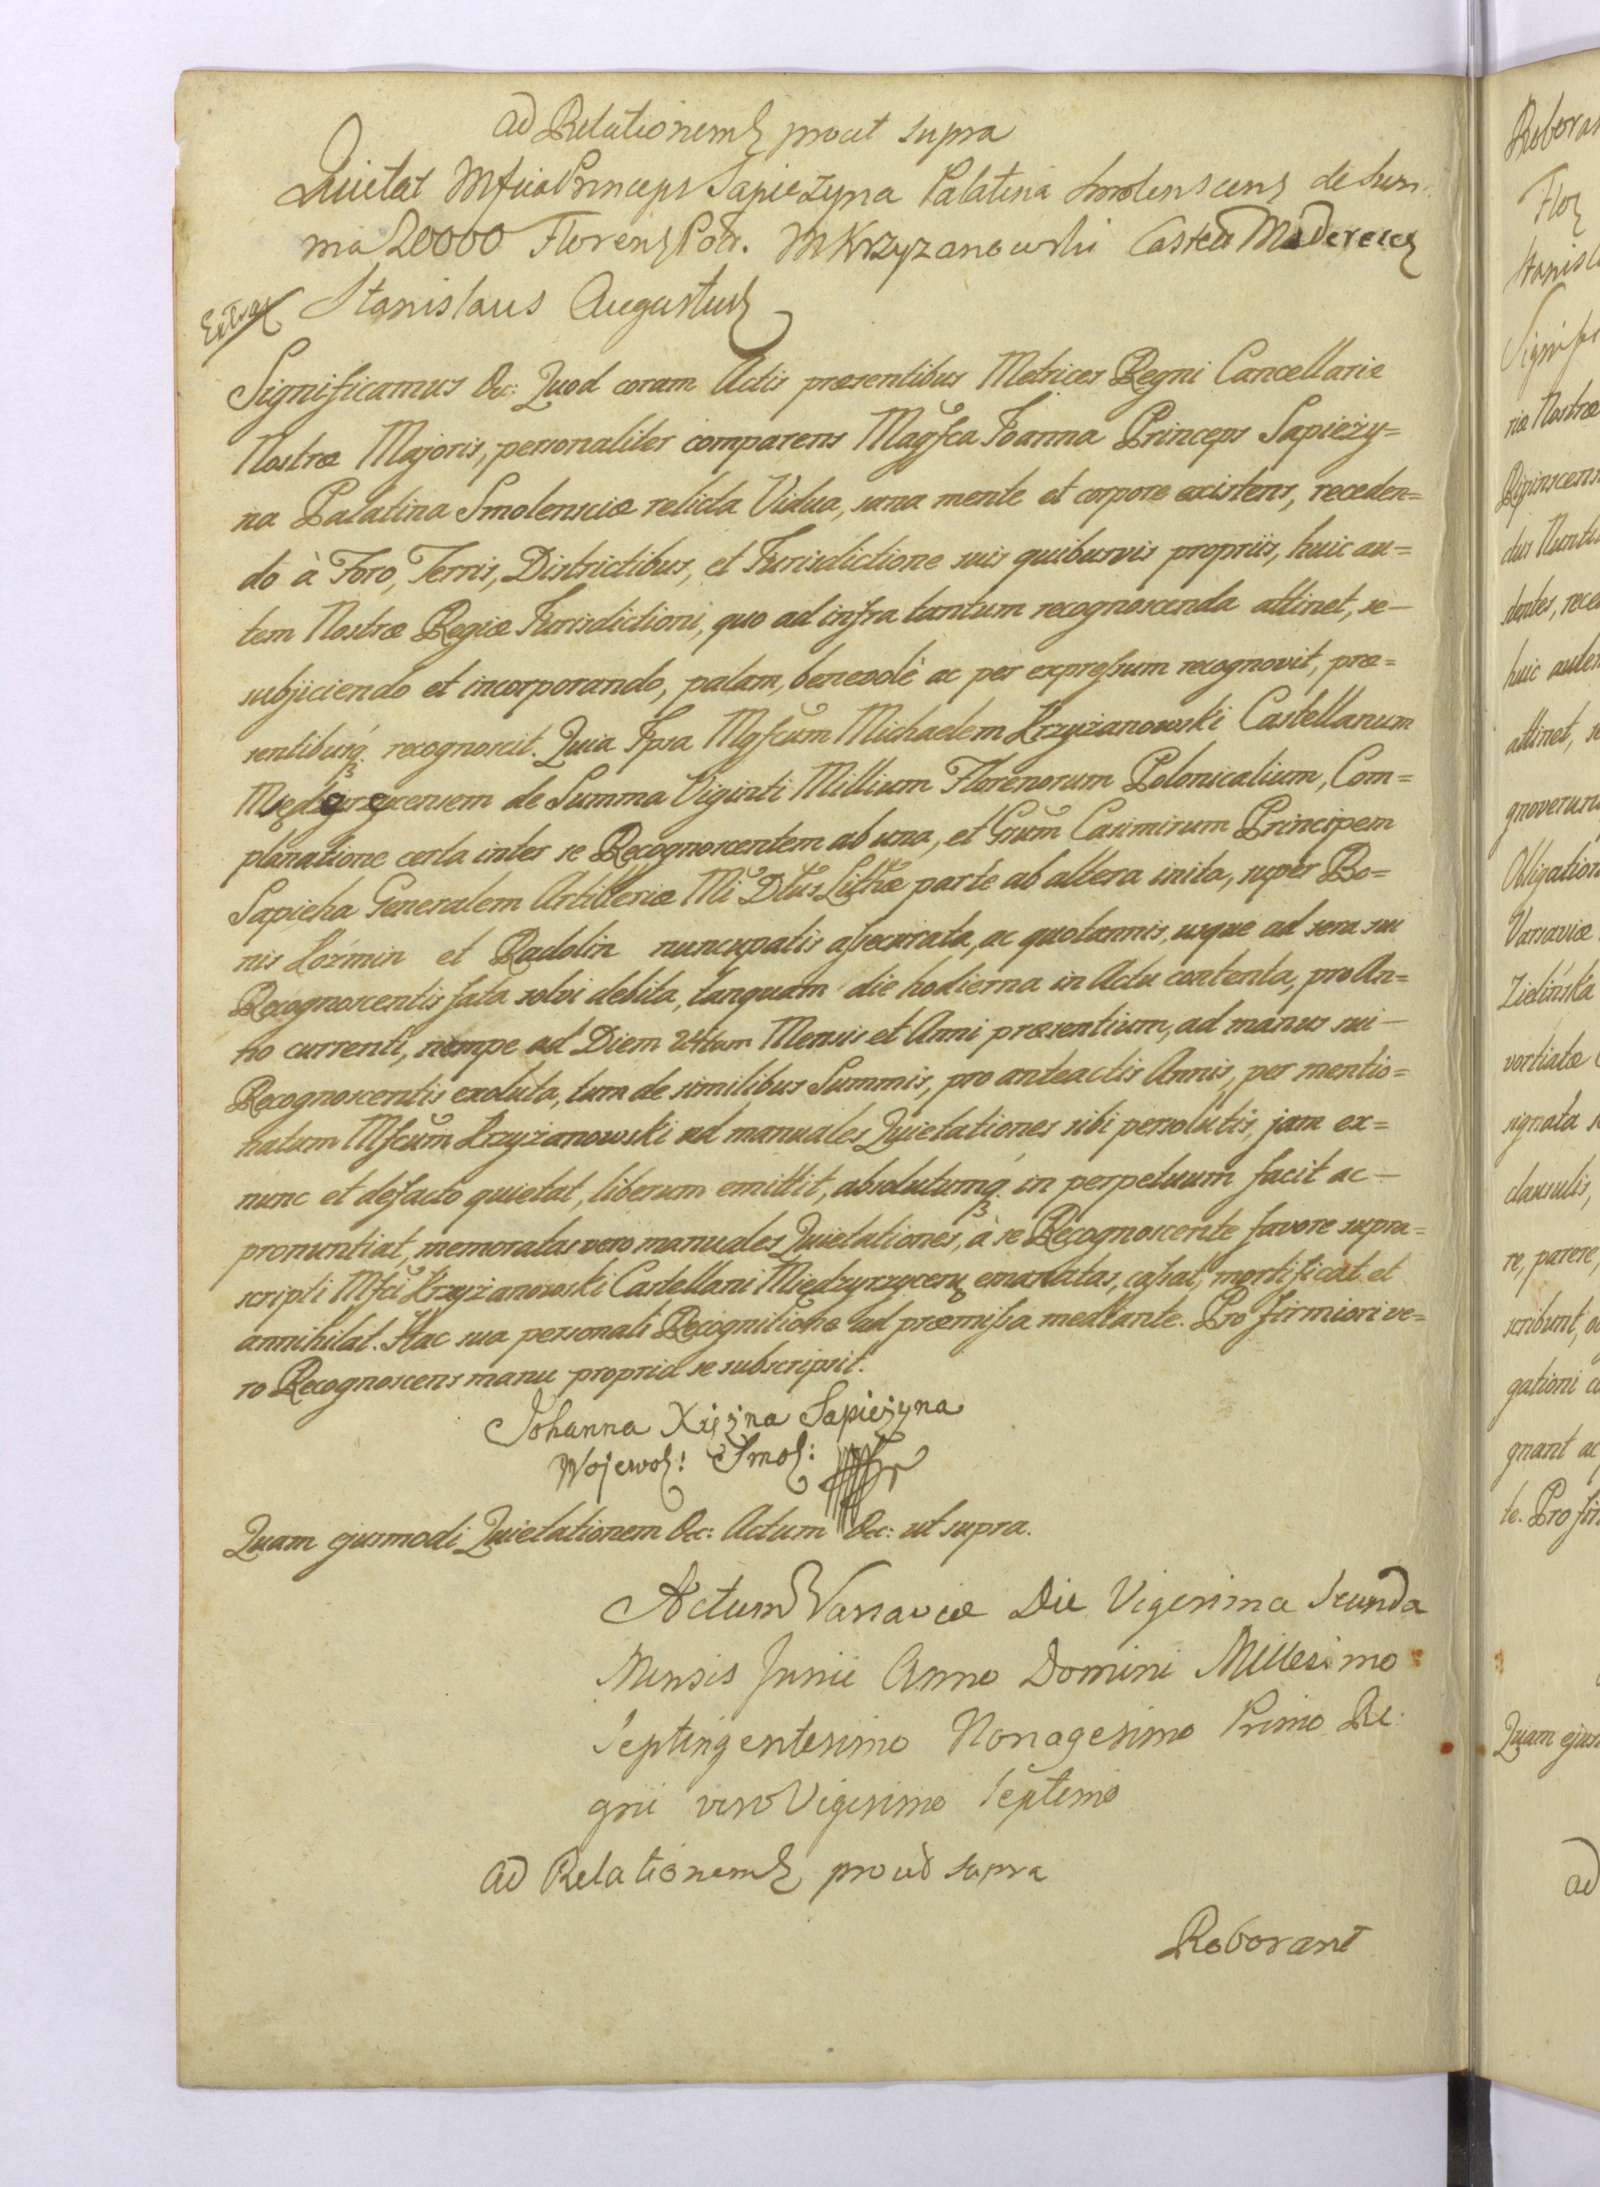 ad Relationem prout supra
Quietat Mfica Princeps Sapiezyna Palatina Smolenscens de Sum-
ma 20000 Floren Pol. M Krzyzanowski Castell
Stanislaus Augustus
Significamus &c: Quod coram Actis præsentibus Metrices Regni Cancellariæ
Nostræ Majoris, personaliter comparens Magfca Joanna Princeps Sapieży=
na Palatina Smolensciæ relicta Vidua, sana mente et corpore existens, receden=
do à Foro, Terris, Districtibus, et Jurisdictione suis quibusvis propriis, huic au=
tem Nostræ Regiæ Jurisdictioni, quo ad infra tantum recognoscenda attinet, se-
subjiciendo et incorporando, palam, benevolè ac per expressum recognovit, præ=
sentibusq. recognoscit. Quia Ipsa Mgfcum Michaelem Krzyżanowski Castellanum
Międzyrzycensem de Summa Viginti Millium Florenorum Polonicalium, Com=
planatione certa inter se Recognoscentem ab una, et Grum Casimirum Principem
Sapieha Generalem Artilleriæ Mi Dtus Lithæ parte ab altera inita, super Bo=
nis Koźmin et Radolin nuncupatis assecurata, ac quotannis, usque ad sera sui
Recognoscentis fata solvi debita, tanquam die hodierna in Actu contenta, pro An=
no currenti, nempe ad Diem 24tam Mensis et Anni præsentium, ad manus sui-
Recognoscentis exoluta, tum de similibus Summis, pro anteactis Annis, per mentio=
natum Mfcum Krzyżanowski ad manuales Quietationes sibi persolutis, jam ex=
nunc et defacto quietat, liberum emittit, absolutumq. in perpetuum facit ac-
pronuntiat, memoratas vero manuales Quietationes, à se Recognoscente favore supra=
scripti Mfci Krzyżanowski Castellani Międzyrzycen emanatas, cassat, mortificat et
annihilat. Hac sua personali Recognitione ad præmissa mediante. Pro firmiori ve=
ro Recognoscens manu propria se subscripsit.
Johanna Xiężna Sapieżyna
Wojewo: Smol:
Quam ejusmodi Quietationem &c: Actum &c: ut supra.
Actum Varsaviæ Die Vigesima Secunda
Mensis Junii Anno Domini Millesimo
Septingentesimo Nonagesimo Primo Re:
gni vero Vigesimo Septimo
ad Relationem prout supra
Roborant